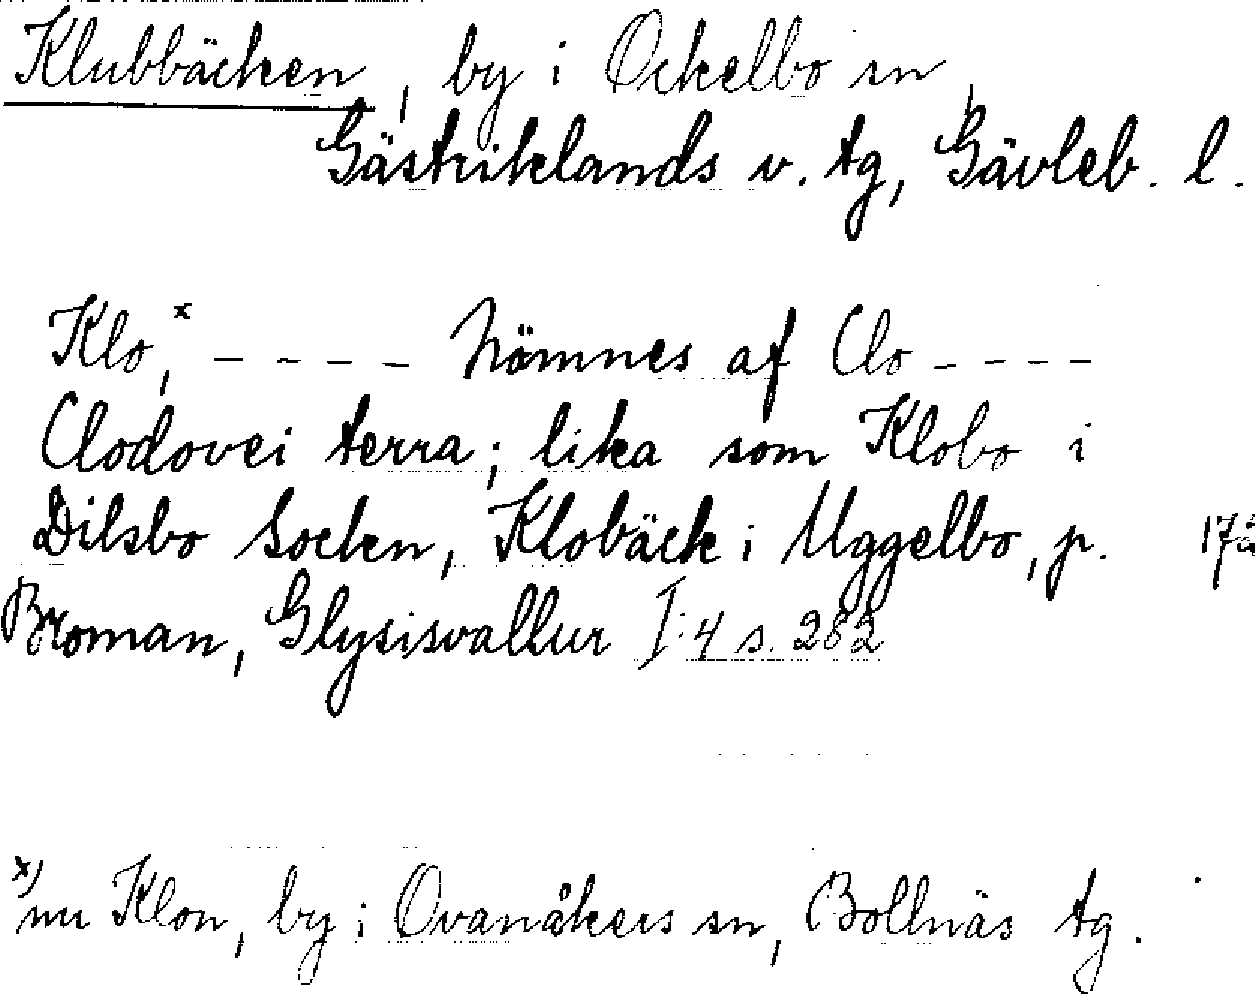 Klubbäcken, by i Ockelbo sn,
Gästriklands v. tg, Gävleb. l.
Klo,ˣ ---- Nämnes af Clo ----
Clodovei terra; lika som Klobo i
Dilsbo Socken, Klobäck i Uggelbo, p. 17å
Broman, Glysisvallur I:4 s. 282
x) nu Klon, by i Ovanåkers sn, Bollnäs tg.